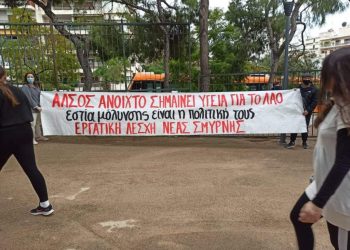 ΑΛΣΟΣ ΑΝΟΙΧΤΟ ΣΗΜΑΙΝΕΙ ΥΓΕΙΑ ΓΙΑ ΤΟ ΛΑΟ
εστία μόλυνσης είναι η πολιτική τους
ΕΡΓΑΤΙΚΗ ΛΕΣΧΗ ΝΕΑΣ ΣΜΥΡΝΗΣ